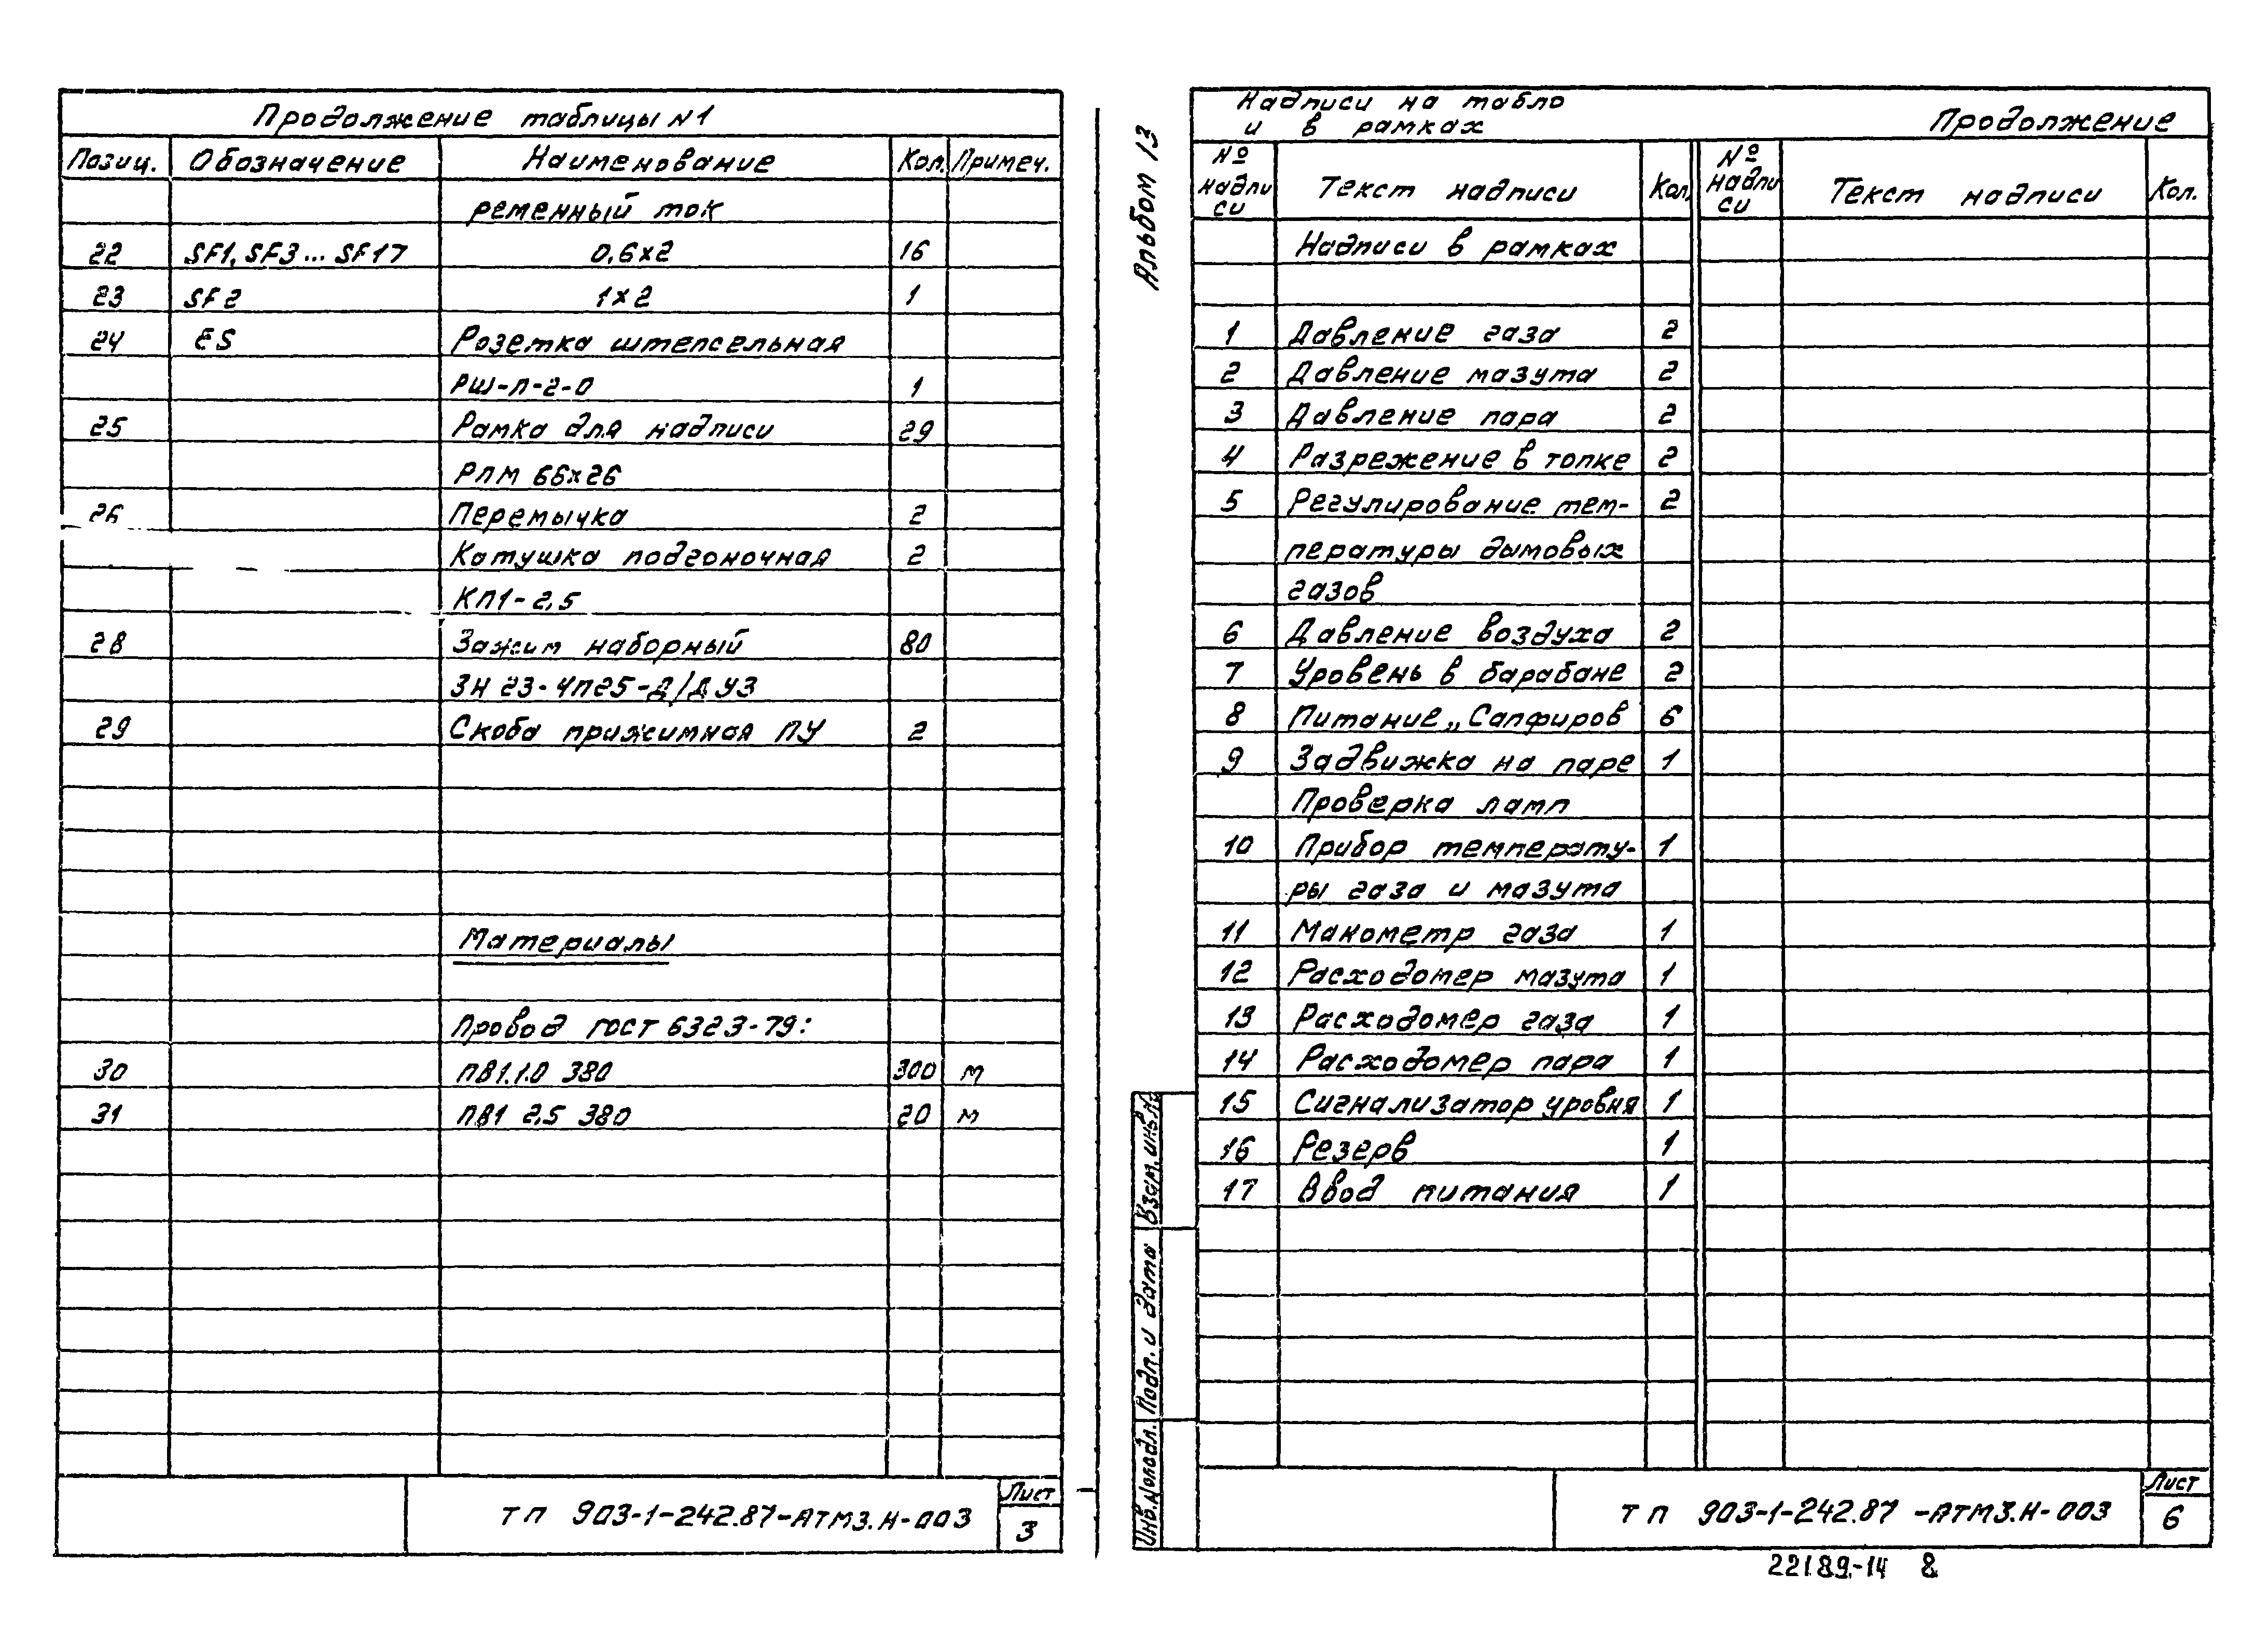 Продолжение таблицы N1
Позиц. Обозначение Наименование Кол. Примеч.
ременный ток
22 SF1, SF3 ... SF17 0,6x2 16
23 SF2 1x2 1
24 ES Розетка штепсельная
РШ-П-2-0 1
25 Рамка для надписи 29
РПМ 66x26
26 Перемычка 2
Катушка подгоночная 2
КП1-2,5
28 Зажим наборный 80
ЗН 23-4П25-Д/ДУ3
29 Скоба прижимная ПУ 2
Материалы
Провод ГОСТ 6323-79:
30 ПВ1.1.0 380 300 м
31 ПВ1 2,5 380 20 м
ТП 903-1-242.87-АТМ3.Н-003
Лист
3
Альбом 13
Надписи на табло
и в рамках
Продолжение
№ надпи си Текст надписи Кол. № надпи си Текст надписи Кол.
Надписи в рамках
1 Давление газа 2
2 Давление мазута 2
3 Давление пара 2
4 Разрежение в топке 2
5 Регулирование тем- 2
пературы дымовых
газов
6 Давление воздуха 2
7 Уровень в барабане 2
8 Питание „Сапфиров 6
9 Задвижка на паре 1
Проверка ламп
10 Прибор температу- 1
ры газа и мазута
11 Манометр газа 1
12 Расходомер мазута 1
13 Расходомер газа 1
14 Расходомер пара 1
15 Сигнализатор уровня 1
16 Резерв 1
17 Ввод питания 1
Взам. инв. №
Подп. и дата
Инв. № подл.
ТП 903-1-242.87-АТМ3.Н-003
Лист
6
22189-14 8